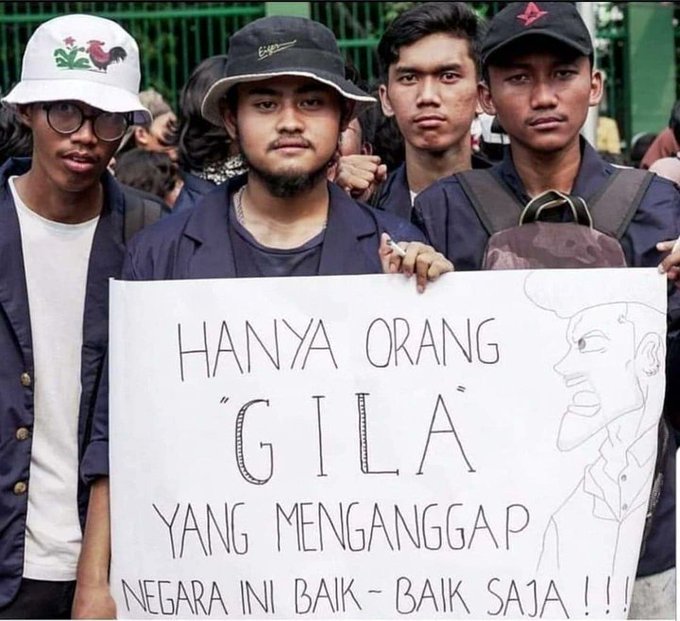 Eiger
HANYA ORANG
"GILA"
YANG MENGANGGAP
NEGARA INI BAIK - BAIK SAJA !!!